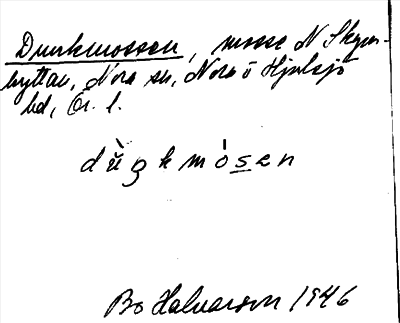 Dunkmossen, mosse N Skym-
hyttan, Nora sn, Nora o Hjulsjö
bd, Ör. l.
dùŋkmósen
Bo Halvarson 1946